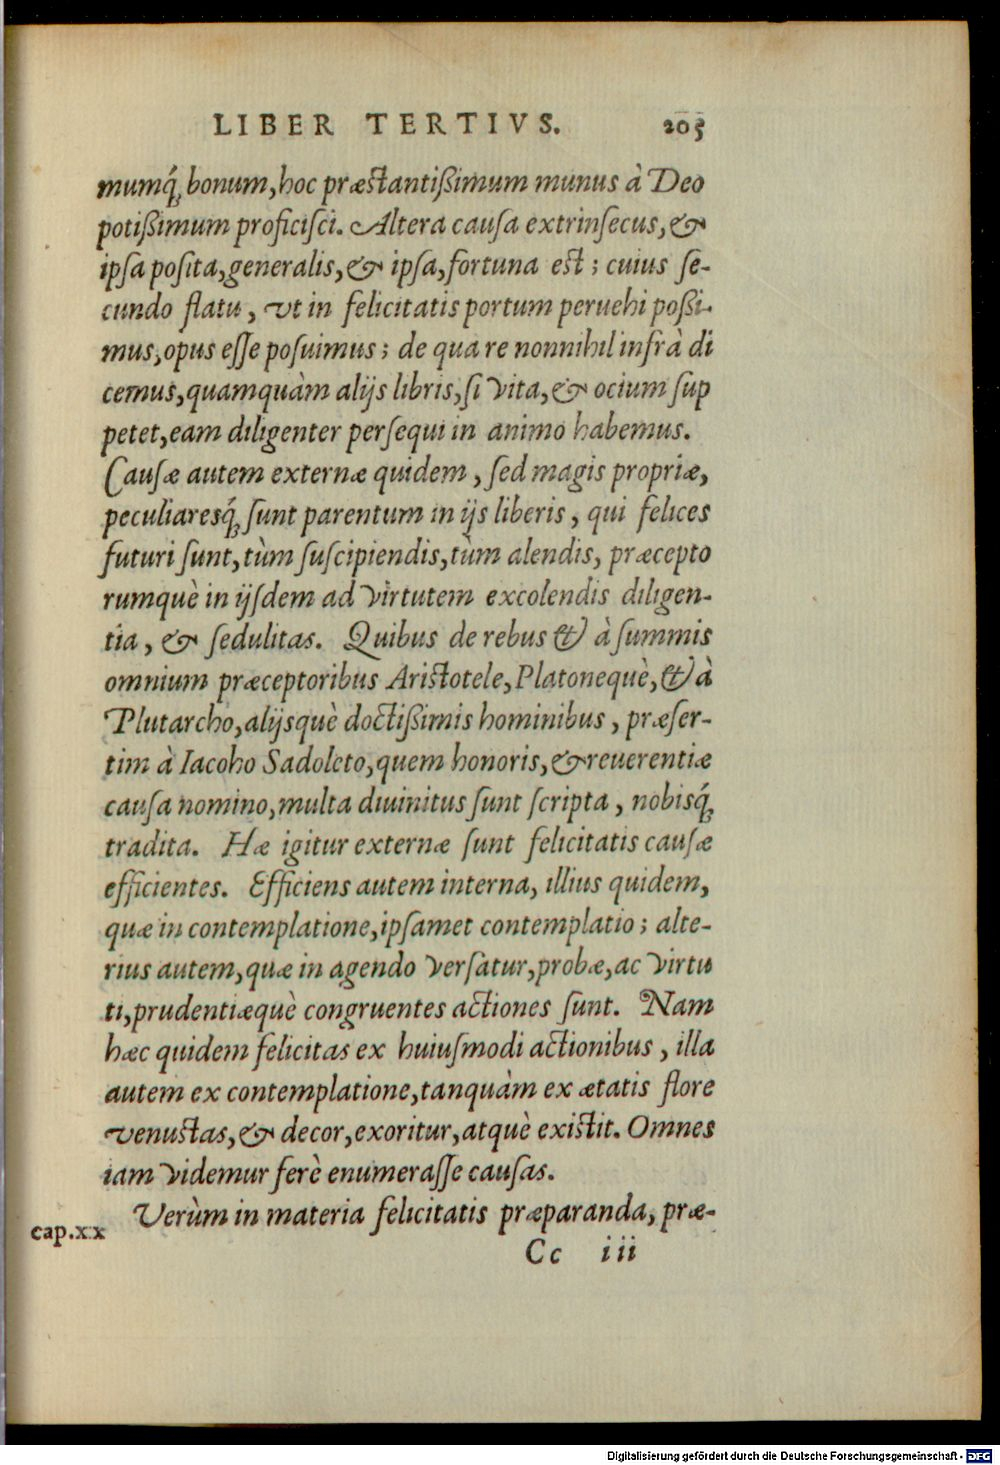 LIBER TERTIVS. 205
mumq́ꝫ bonum, hoc præstantißimum munus à Deo
potißimum proficiſci. Altera cauſa extrinſecus, &
ipſa poſita, generalis, & ipſa, fortuna est; cuius ſe-
cundo flatu, vt in felicitatis portum peruehi poßi-
mus, opus eſſe poſuimus; de qua re nonnihil infrà di
cemus, quamquàm alijs libris, ſi vita, & ocium ſup
petet, eam diligenter perſequi in animo habemus.
Cauſæ autem externæ quidem, ſed magis propriæ,
peculiaresq́ꝫ ſunt parentum in ijs liberis, qui felices
futuri ſunt, tùm ſuſcipiendis, tùm alendis, præcepto
rumquè in ijſdem ad virtutem excolendis diligen-
tia, & ſedulitas. Quibus de rebus & à ſummis
omnium præceptoribus Aristotele, Platonequè, & à
Plutarcho, alijsquè doctißimis hominibus, præſer-
tim à Iacobo Sadoleto, quem honoris, & reuerentiæ
cauſa nomino, multa diuinitus ſunt ſcripta, nobisq́ꝫ
tradita. Hæ igitur externæ ſunt felicitatis cauſæ
efficientes. Efficiens autem interna, illius quidem,
quæ in contemplatione, ipſamet contemplatio; alte-
rius autem, quæ in agendo verſatur, probæ, ac virtu
ti, prudentiæquè congruentes actiones ſunt. Nam
hæc quidem felicitas ex huiuſmodi actionibus, illa
autem ex contemplatione, tanquàm ex ætatis flore
venustas, & decor, exoritur, atquè existit. Omnes
iam videmur ferè enumeraſſe cauſas.
Verùm in materia felicitatis præparanda, præ-
cap.xx
Cc iii
Digitalisierung gefördert durch die Deutsche Forschungsgemeinschaft - DFG